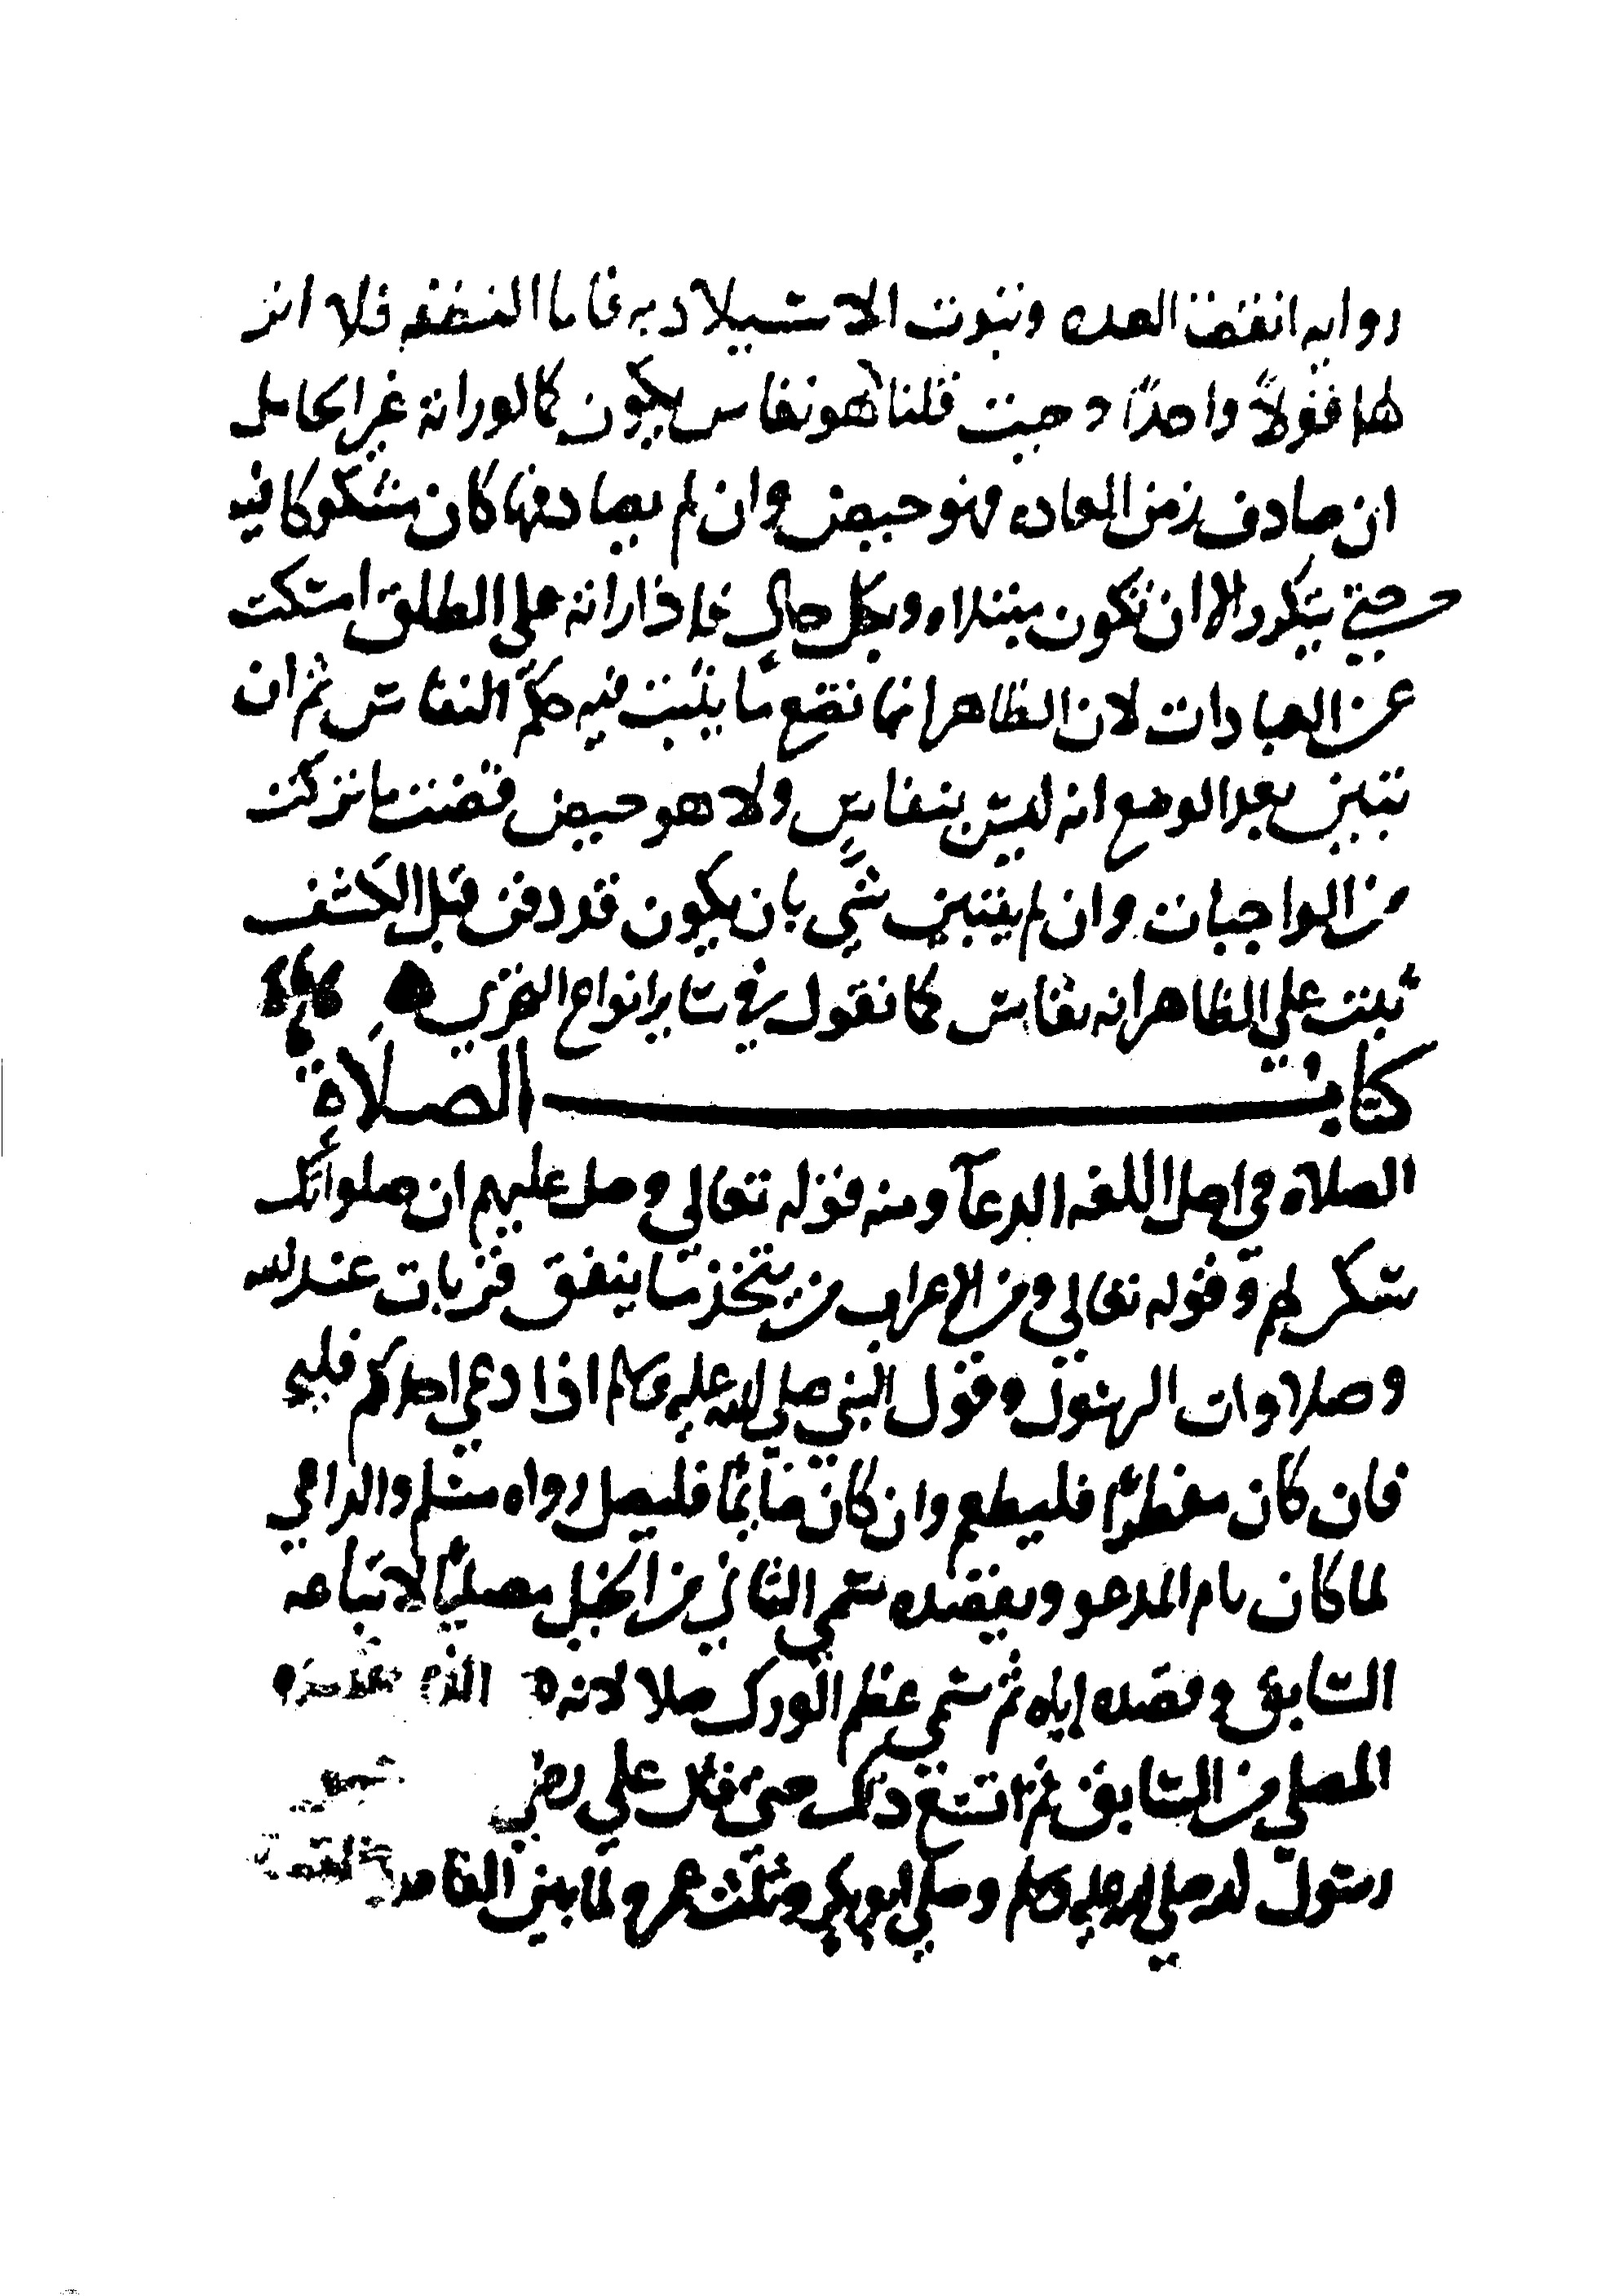 رواية انقضت العدة وثبوت الاستيلاد به فاما النطفه فلا اثر
لها قولاً واحدًا وحيث قلنا هو نفاس يكون كما لو رأته غير الحامل
ان صادف زمن العاده فهو حيض وان لم يصادفها كان مشكوكا فيه
حتى يتكرر الا ان تكون مبتداه وبكل حال فاذا راته على الطلق امسكت
عن العبادات لان الظاهر انها تضع ما يثبت فيه حكم النفاس ثم ان
تبين بعد الوضع انه ليس بنفاس ولا هو حيض قضت ما تركت
من الواجبات وان لم يتبين شي بان يكون قد دفن قبل الكشف
ثبت على الظاهر انه نفاس كما نقول في سائر انواع التحري
كتاب الصلاة
الصلاة في اصل اللغه الدعآ ومنه قوله تعالى وصل عليهم ان صلواتك
سكن لهم وقوله تعالى ومن الاعراب من يتخذ ما ينفق قربات عند الله
وصلاوات الرسول وقول النبي صلى الله عليه وسلم اذا دعي احدكم فليجب
فان كان مفطرا فليطعم وان كان صائما فليصل رواه مسلم والداعي
لما كان يام المدعو ويقصده سمي الثاني من الخيل مصليًا لاتباعه
السابق وقصده اياه ثم سمي عظم الورك صلا لانه الذي
المصلي من السابق ثم اتسع ذلك حتى قال علي رضي
رسول الله صلى الله عليه وسلم وصلى ابو بكر وثلث عمر ولما بين القاصد